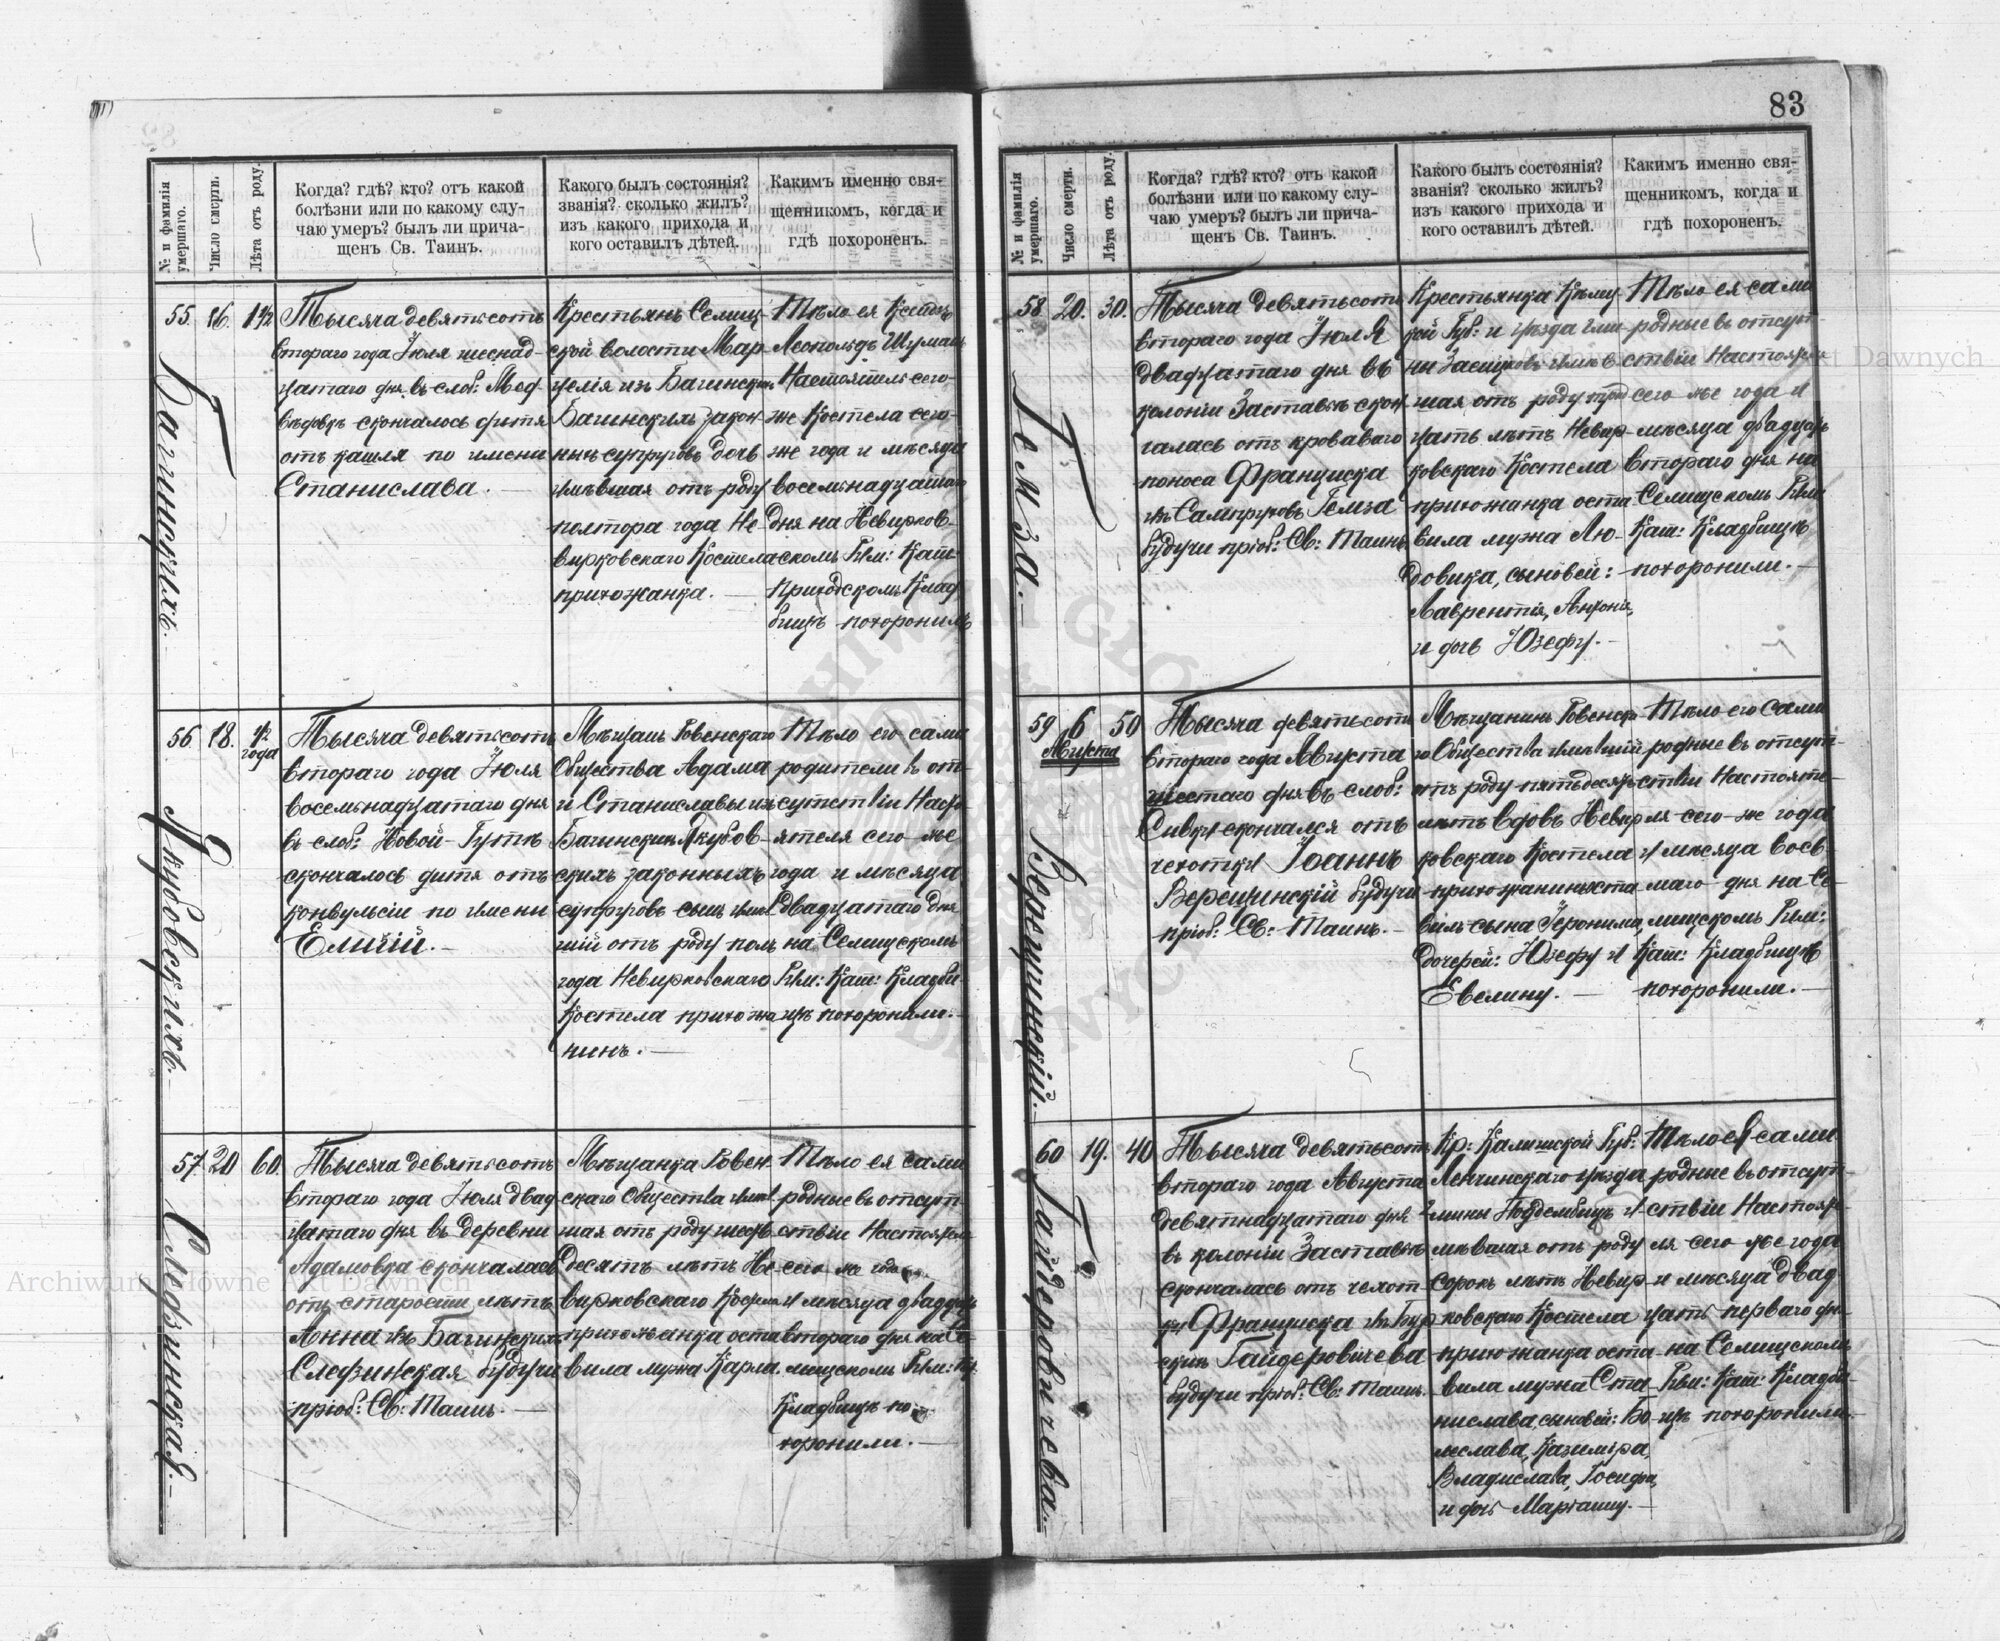 83
№ и фамилія умершаго.
Число смерти.
Лѣта отъ роду.
Когда? гдѣ? кто? отъ какой
болѣзни или по какому слу-
чаю умеръ? былъ ли прича-
щенъ Св. Таинъ.
Какого былъ состоянія?
званія? сколько жилъ?
изъ какого прихода и
кого оставилъ дѣтей.
Какимъ именно свя-
щенникомъ, когда и
гдѣ похороненъ.
55
16.
1½
Багинскихъ.
Тысяча девятьсотъ
втораго года Іюля шеснад-
цатаго дня въ слоб: Мед-
вѣдовкѣ скончалось дитя
отъ кашля по имени
Станислава. —
Крестьянъ Селищ-
ской волости Мар-
целія изъ Багинских
Багинскихъ закон-
ныхъ супруговъ дочь
имѣвшая отъ роду
полтора года Не-
вирковскаго Костела
прихожанка. —
Тѣло ея Ксендзъ
Леопольдъ Шуманъ
Настоятель сего-
же Костела сего-
же года и мѣсяца
восемьнадцатаго
дня на Невирков-
скомъ Рим: Кат:
Приходскомъ Клад-
бищѣ похоронилъ
56
18.
½ года
Якубовскихъ.
Тысяча девятьсотъ
втораго года Іюля
восемьнадцатаго дня
въ слоб: Новой-Гутѣ
скончалось дитя отъ
конвульсіи по имени
Елигій. —
Мѣщанъ Ровенскаго
Общества Адама
и Станиславы изъ
Багинскихъ Якубов-
скихъ законныхъ
супруговъ сынъ имѣв-
шій отъ роду полъ
года Невирковскаго
Костела прихожа-
нинъ. —
Тѣло его сами
родители въ от-
сутствіи Насто-
ятеля сего-же
года и мѣсяца
двадцатаго дня
на Селищскомъ
Рим: Кат: Кладби-
щѣ похоронили. —
57
20
60.
Следзинская. —
Тысяча девятьсотъ
втораго года Іюля двад-
цатаго дня въ деревни
Адамовка скончалась
отъ старости лѣтъ
Анна изъ Багинских
Следзинская будучи
пріоб: Св: Таинъ. —
Мѣщанка Ровен-
скаго Общества имѣв-
шая отъ роду шесть-
десятъ лѣтъ Не-
вирковскаго Костела
прихожанка оста-
вила мужа Карла.
Тѣло ея сами
родные въ отсут-
ствіи Настоятеля
сего-же года
и мѣсяца двадцать
втораго дня на Се-
лищскомъ Рим: Кат:
Кладбищѣ по-
хоронили. —
№ и фамилія умершаго.
Число смерти.
Лѣта отъ роду.
Когда? гдѣ? кто? отъ какой
болѣзни или по какому слу-
чаю умеръ? былъ ли прича-
щенъ Св. Таинъ.
Какого былъ состоянія?
званія? сколько жилъ?
изъ какого прихода и
кого оставилъ дѣтей.
Какимъ именно свя-
щенникомъ, когда и
гдѣ похороненъ.
58
20.
30.
Гемза. —
Тысяча девятьсотъ
втораго года Іюля
двадцатаго дня въ
колоніи Заставье скон-
чалась отъ кроваваго
поноса Франциска
изъ Гемза
будучи пріоб: Св: Таинъ
Крестьянка
кой Губ: и уѣзда гми-
ны имѣв-
шая отъ роду трид-
цать лѣтъ Невир-
ковскаго Костела
прихожанка оста-
вила мужа Лю-
довика, сыновей:
Лаврентія, Антонія,
и дочь Юзефу. —
Тѣло ея сами
родные въ отсут-
ствіи Настоятеля
сего же года и
мѣсяца двадцать
втораго дня на
Селищскомъ Рим:
Кат: Кладбищѣ
похоронили. —
59
6
Августа
50
Верещинскій. —
Тысяча девятьсотъ
втораго года Августа
шестаго дня въ слоб:
Сивки скончался отъ
чехотки Іоаннъ
Верещинскій будучи
пріоб: Св: Таинъ. —
Мѣщанинъ Ровенска-
го Общества имѣвшій
отъ роду пятьдесятъ
лѣтъ вдовъ Невир-
ковскаго Костела
прихожанинъ оста-
вилъ сына Іеронима,
дочерей: Юзефу и
Евелину. —
Тѣло его сами
родные въ отсут-
ствіи Настояте-
ля сего-же года
и мѣсяца вось-
маго дня на Се-
лищскомъ Рим:
Кат: Кладбищѣ
похоронили. —
60
19.
40
Гайдеровичева. —
Тысяча девятьсотъ
втораго года Августа
девятнадцатаго дня
въ колоніи Заставье
скончалась отъ чехот-
ки Франциска изъ Бур-
скихъ Гайдеровичева
будучи пріоб: Св: Таинъ.
Кр: Калишской Губ:
Ленчинскаго уѣзда
гмины Поддембицъ и-
мѣвшая отъ роду
сорокъ лѣтъ Невир-
ковскаго Костела
прихожанка оста-
вила мужа Ста-
нислава, сыновей: Бо-
леслава, Казиміра,
Владислава, Іосифа,
и дочь Маріанну. —
Тѣло ея сами
родные въ отсут-
ствіи Настояте-
ля сего же года
и мѣсяца двад-
цать перваго дня
на Селищскомъ
Рим: Кат: Кладби-
щѣ похоронили. —
Archiwum Główne Akt Dawnych